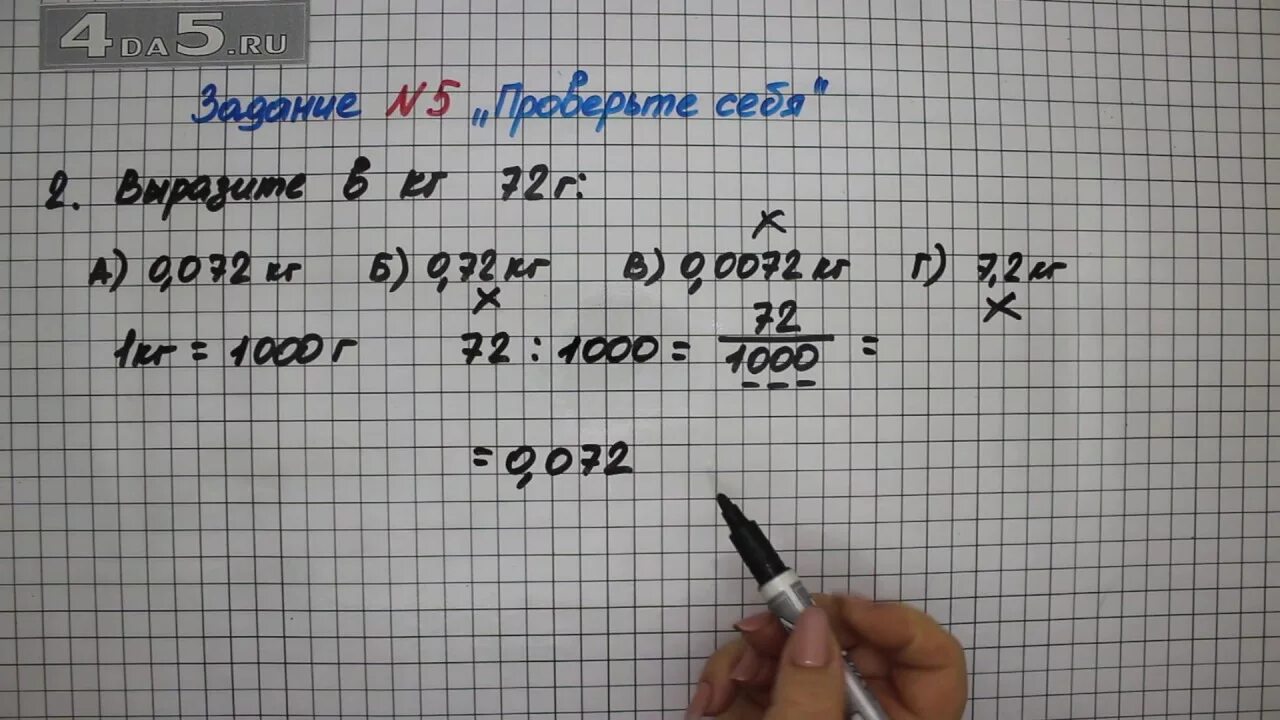 4DA5.RU
Задание N5 „Проверьте себя"
2. Выразите в кг 72г:
х
А) 0,072 кг Б) 0,72 кг В) 0,0072 кг Г) 7,2 кг
х х
1кг = 1000 г 72 : 1000 = 72/1000 =
= 0,072